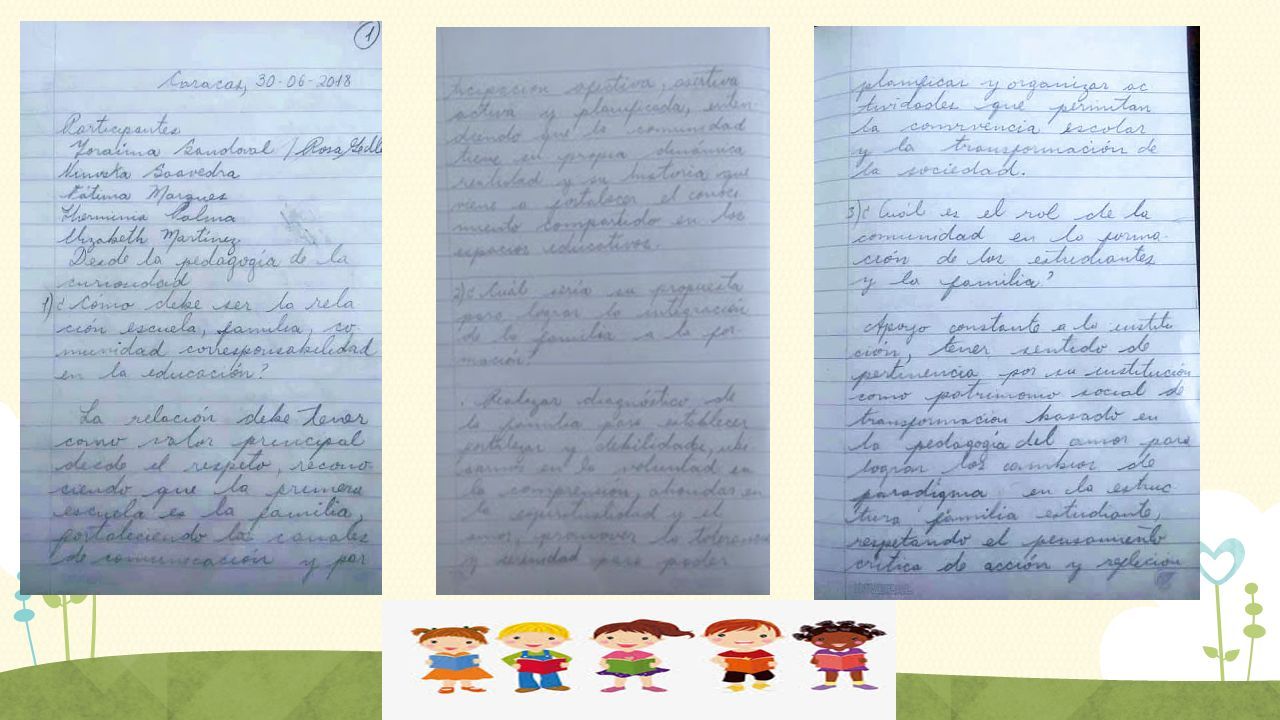 1
Caracas, 30-06-2018
Participantes
Yoraima Sandoval / Rosa
Saavedra
Fátima Marques
Herminia Palma
Elizabeth Martínez
Desde la pedagogía de la
curiosidad
1) ¿Cómo debe ser la rela
ción escuela, familia, co
munidad corresponsabilidad
en la educación?
La relación debe tener
como valor principal
desde el respeto, recono
ciendo que la primera
escuela es la familia,
fortaleciendo los canales
de comunicación y par
ticipación efectiva, asertiva
activa y planificada, enten
diendo que la comunidad
tiene su propia dinámica
realidad y su historia que
viene a fortalecer el conoci
miento compartido en los
espacios educativos.
2) ¿Cuál sería su propuesta
para lograr la integración
de la familia a la for
mación?
Realizar diagnóstico de
la familia para establecer
fortalezas y debilidades,
en la voluntad en
la comprensión, ahondar en
la espiritualidad y el
amor, promover la tolerancia
y para poder
planificar y organizar ac
tividades que permitan
la convivencia escolar
y la transformación de
la sociedad.
3) ¿Cuál es el rol de la
comunidad en la forma-
ción de los estudiantes
y la familia?
Apoyo constante a la institu
ción, tener sentido de
pertinencia por su institución
como patrimonio social de
transformación basado en
la pedagogía del amor para
lograr los cambios de
paradigma en la estruc
tura familia estudiante,
respetando el pensamiento
crítica de acción y reflecion